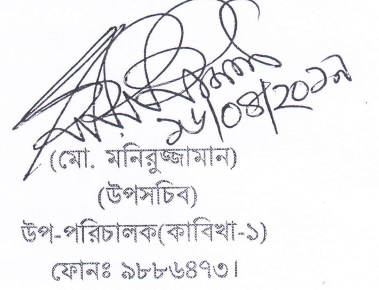 ১৬/০৪/২০১৭
(মো. মনিরুজ্জামান)
(উপসচিব)
উপ-পরিচালক(কাবিখা-১)
ফোনঃ ৯৮৮৬৪৭৩।